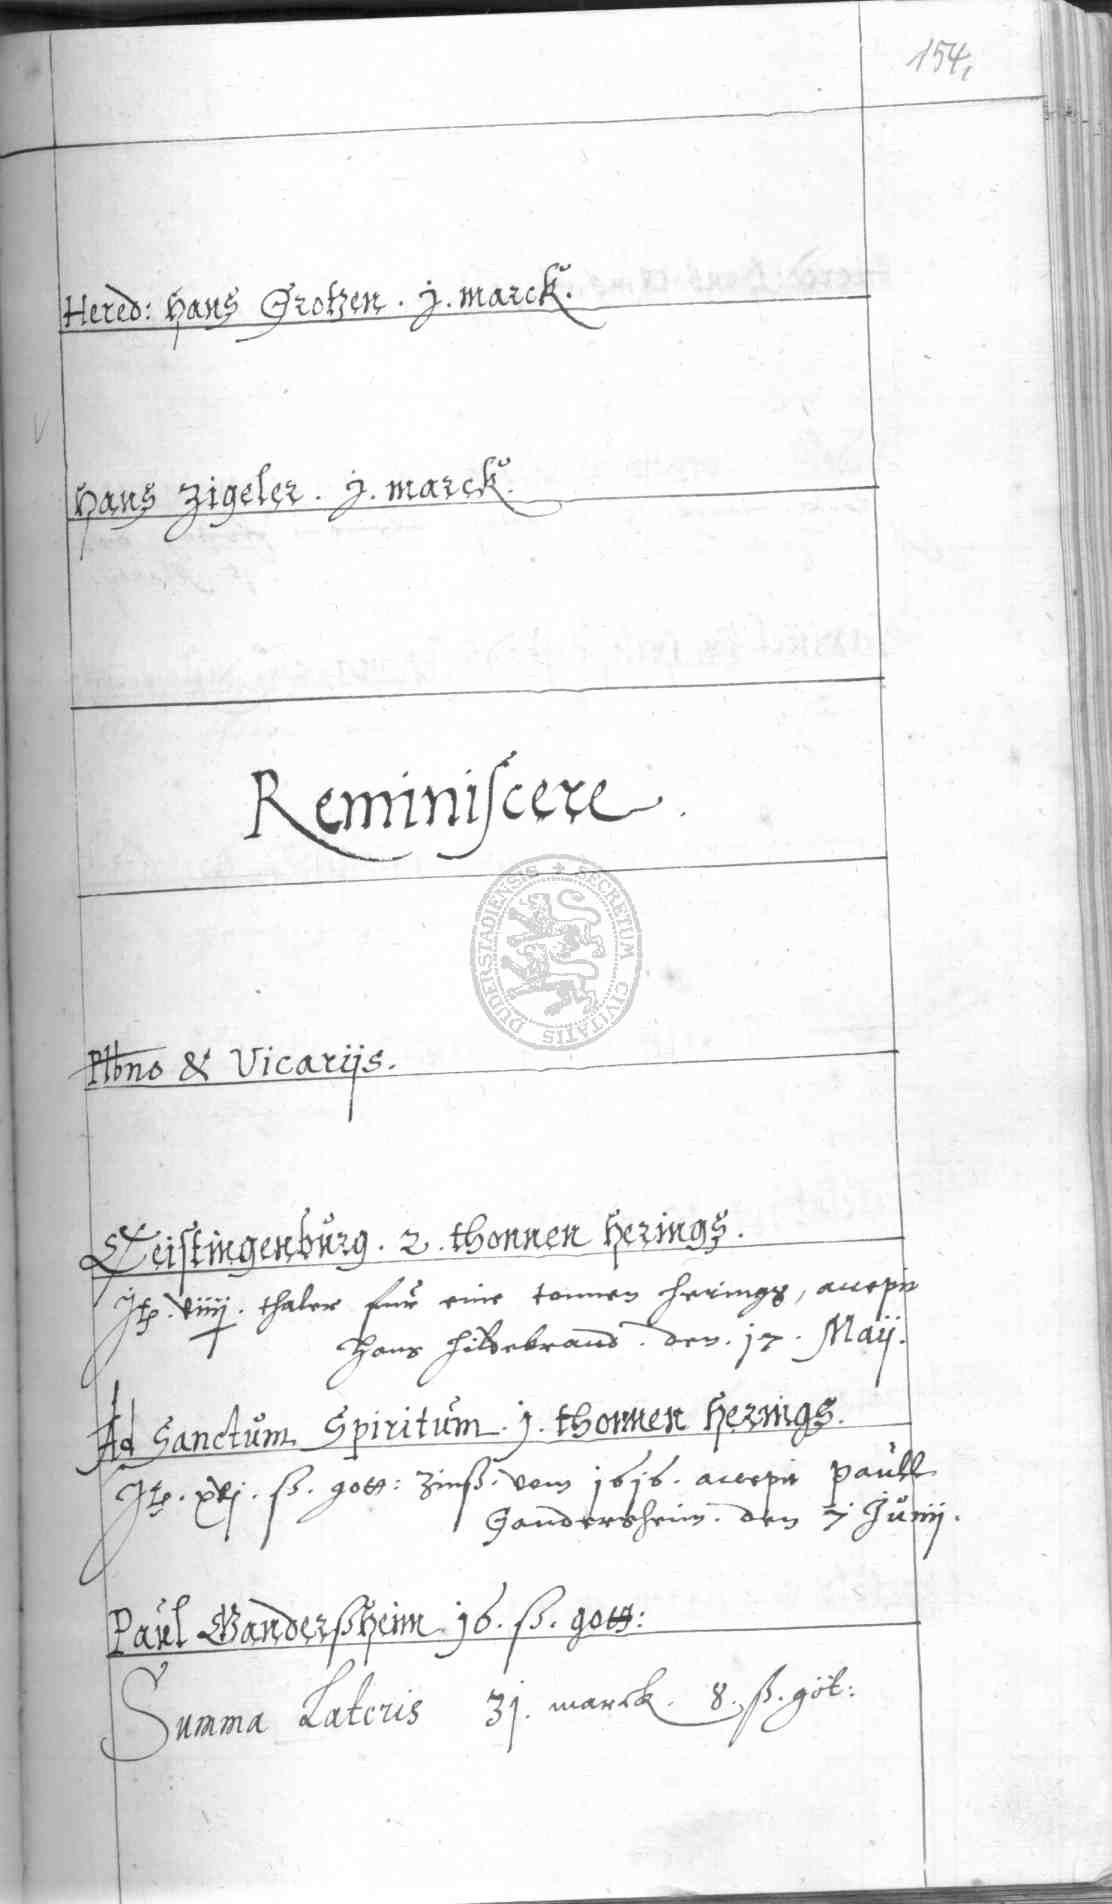 154,
Hered: Hans Grotzen . j. marck.
Hans Zigeler . j. marck.
Reminiscere .
Plbno & Vicarijs.
SECRETUM CIVITATIS DUDERSTADIENSIS
Teistingenburg . 2 . thonnen Herings .
viiij . thaler fur eine tonnen herings , accepit
Hans Hildebrand . den . 17 . Maij .
Ad Sanctum Spiritum . j . thonnen Herings .
xvj . ß . gott : Zinß . vom 1616 . accepit Paull
Gandersheim . den 7 Junij .
Paul Ganderßheim . 16 . ß . gott :
Summa Lateris 31 . marck . 8 . ß . göt :